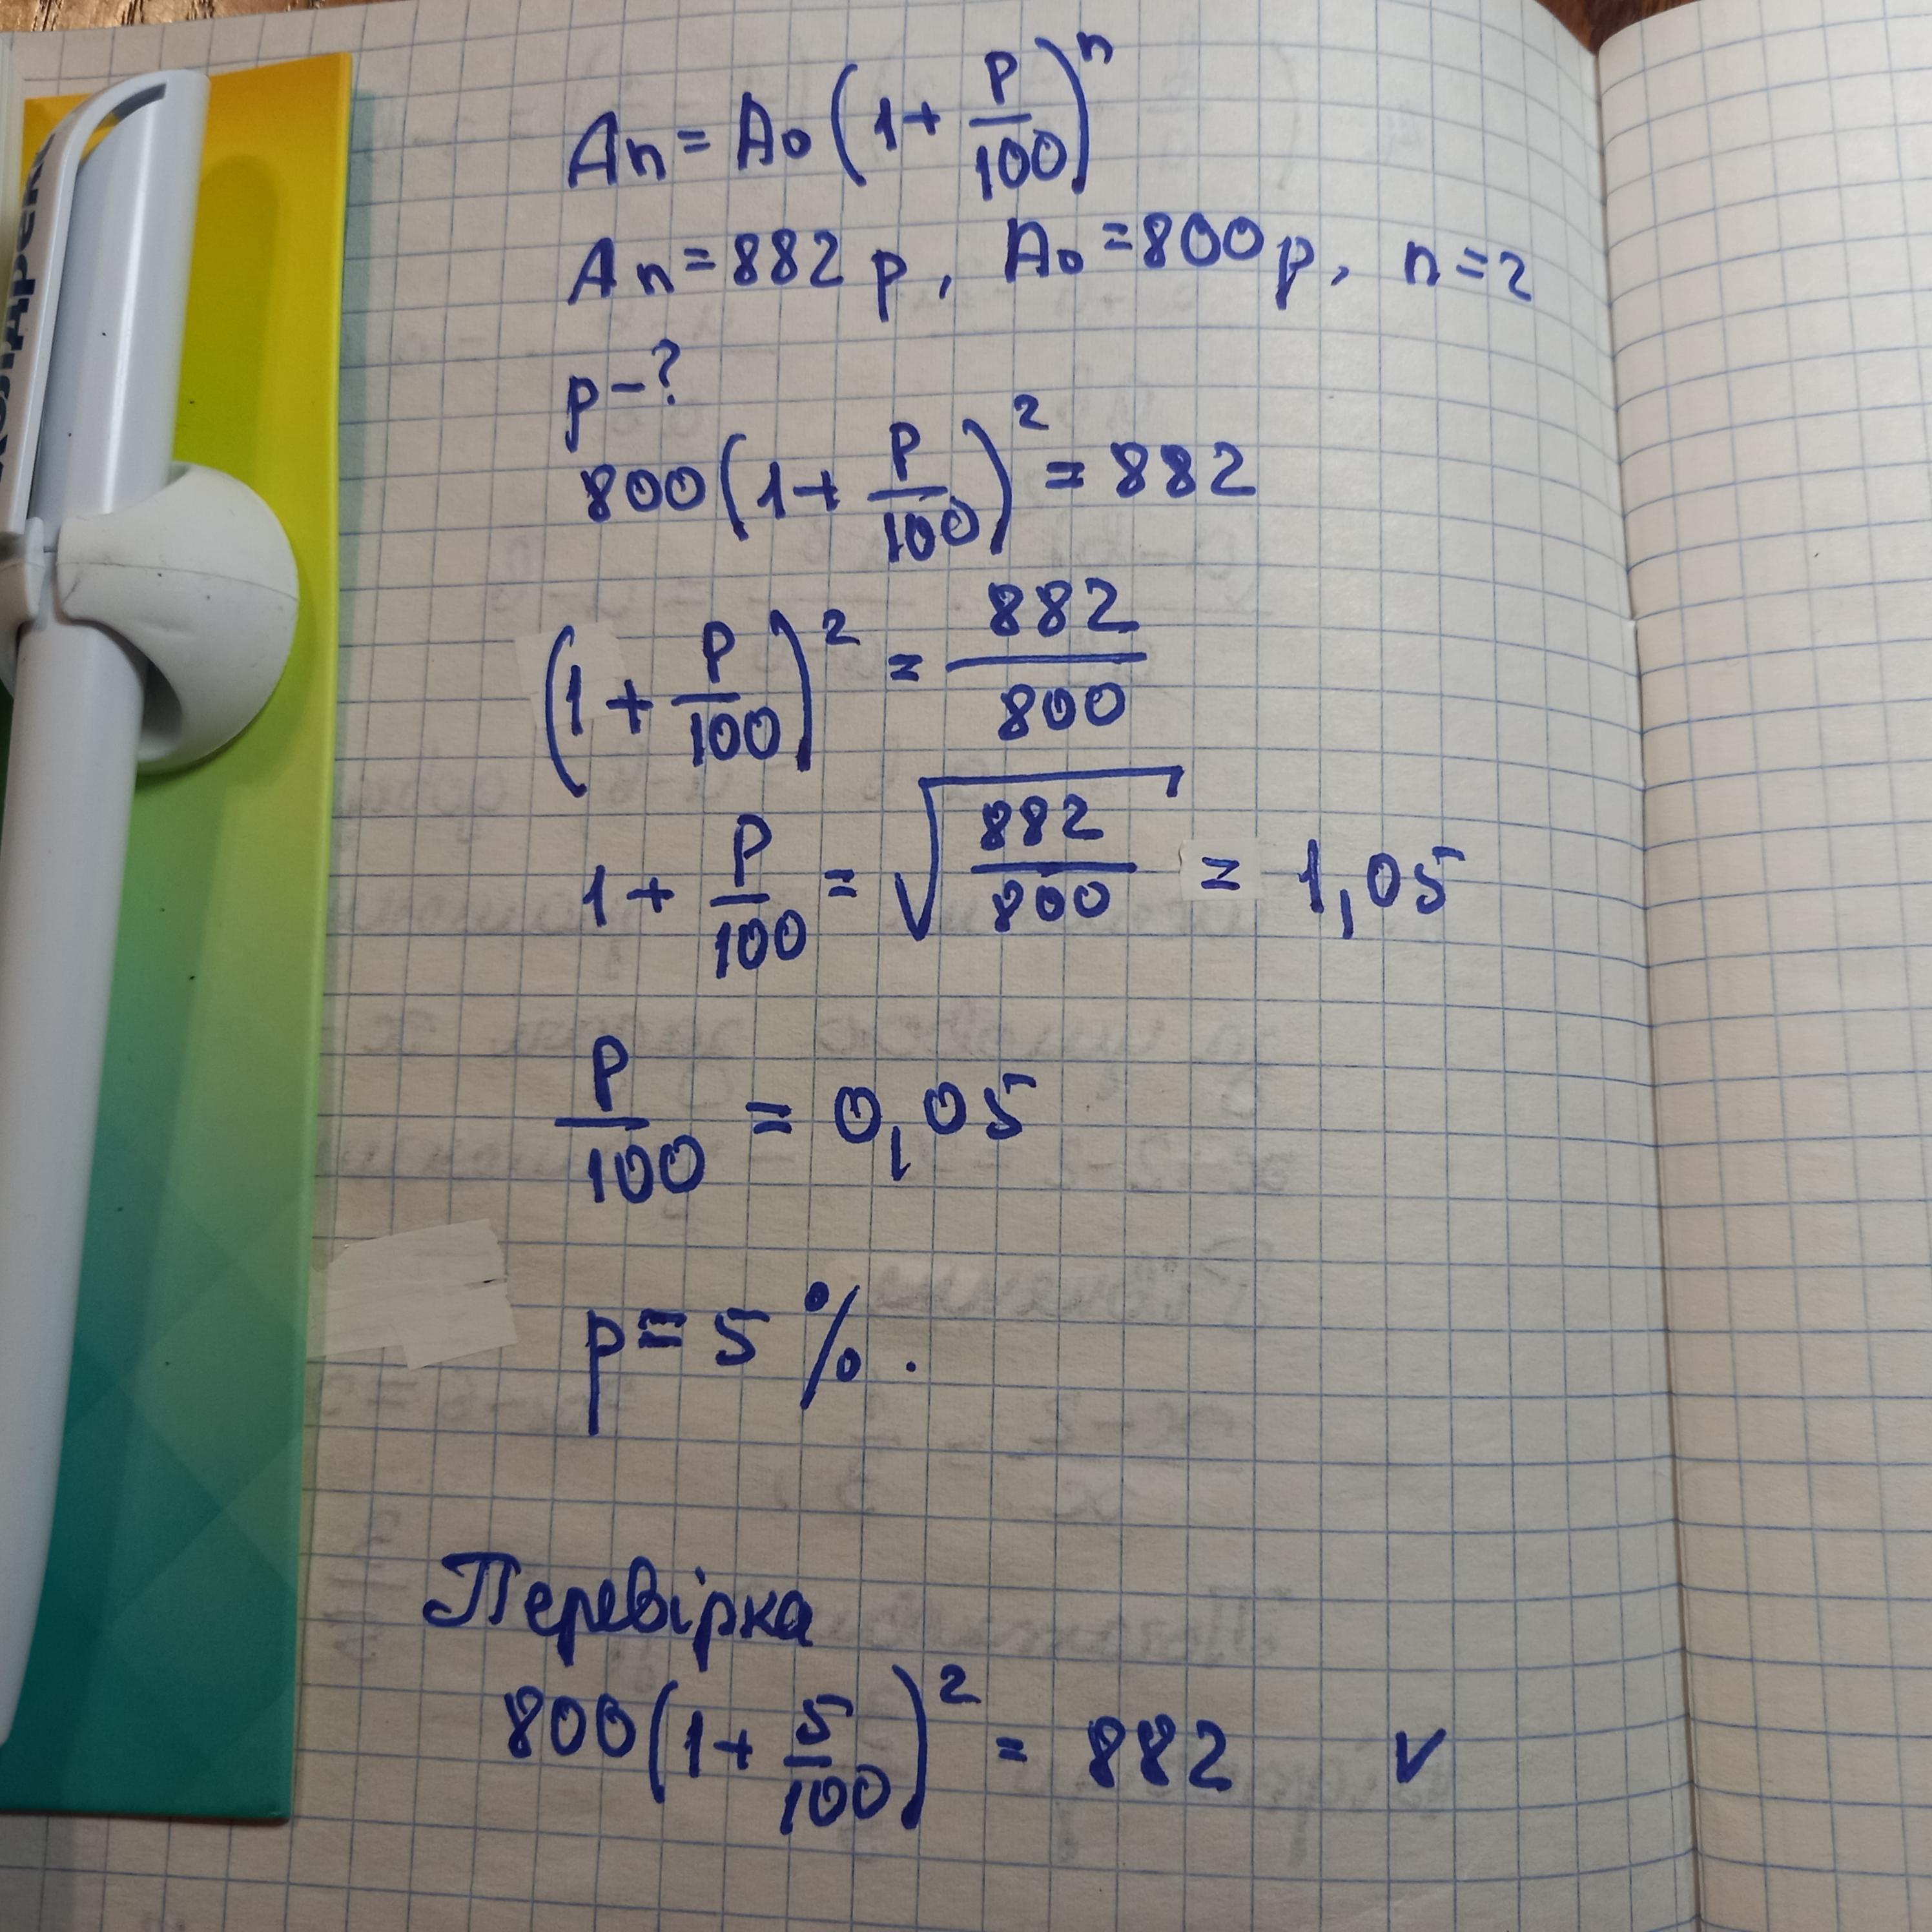 An = A₀ (1 + P/100)ⁿ
An = 882 р, A₀ = 800 р, n = 2
p - ?
800 (1 + P/100)² = 882
(1 + P/100)² = 882/800
1 + P/100 = √(882/800) = 1,05
P/100 = 0,05
p = 5 %.
Перевірка
800 (1 + 5/100)² = 882 v